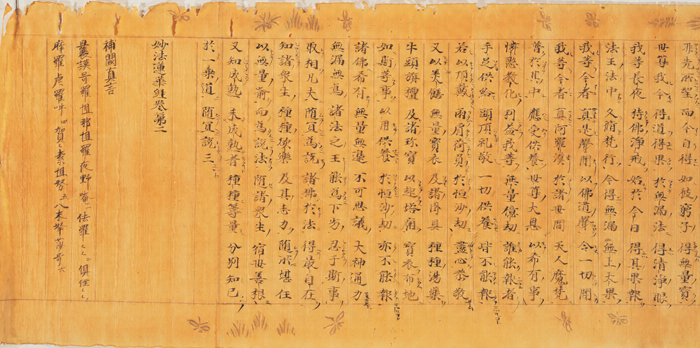 非先所望 而今自得 如彼窮子 得無量寶
世尊我今 得道得果 於無漏法 得清淨眼
我等長夜 持佛淨戒 始於今日 得其果報
法王法中 久修梵行 今得無漏 無上大果
我等今者 真是聲聞 以佛道聲 令一切聞
我等今者 真阿羅漢 於諸世間 天人魔梵
普於其中 應受供養 世尊大恩 以希有事
憐愍教化 利益我等 無量億劫 誰能報者
手足供給 頭頂礼敬 一切供養 皆不能報
若以頂戴 兩肩荷負 於恒沙劫 盡心恭敬
又以美饍 無量寶衣 及諸臥具 種種湯藥
牛頭栴檀 及諸珍寶 以起塔廟 寶衣布地
如斯等事 以用供養 於恒沙劫 亦不能報
諸佛希有 無量無邊 不可思議 大神通力
無漏無為 諸法之王 能為下劣 忍于斯事
取相凡夫 随宜為說 諸佛於法 得最自在
知諸衆生 種種欲樂 及其志力 随所堪任
以無量喻 而為說法 随諸衆生 宿世善根
又知成熟 未成熟者 種種籌量 分別知已
於一乘道 随宜說三
妙法蓮華經卷第二
補闕真言
曩謨 羅怛 怛羅夜野 佉羅 俱住
摩羅 虎羅吽 賀 蘇怛拏